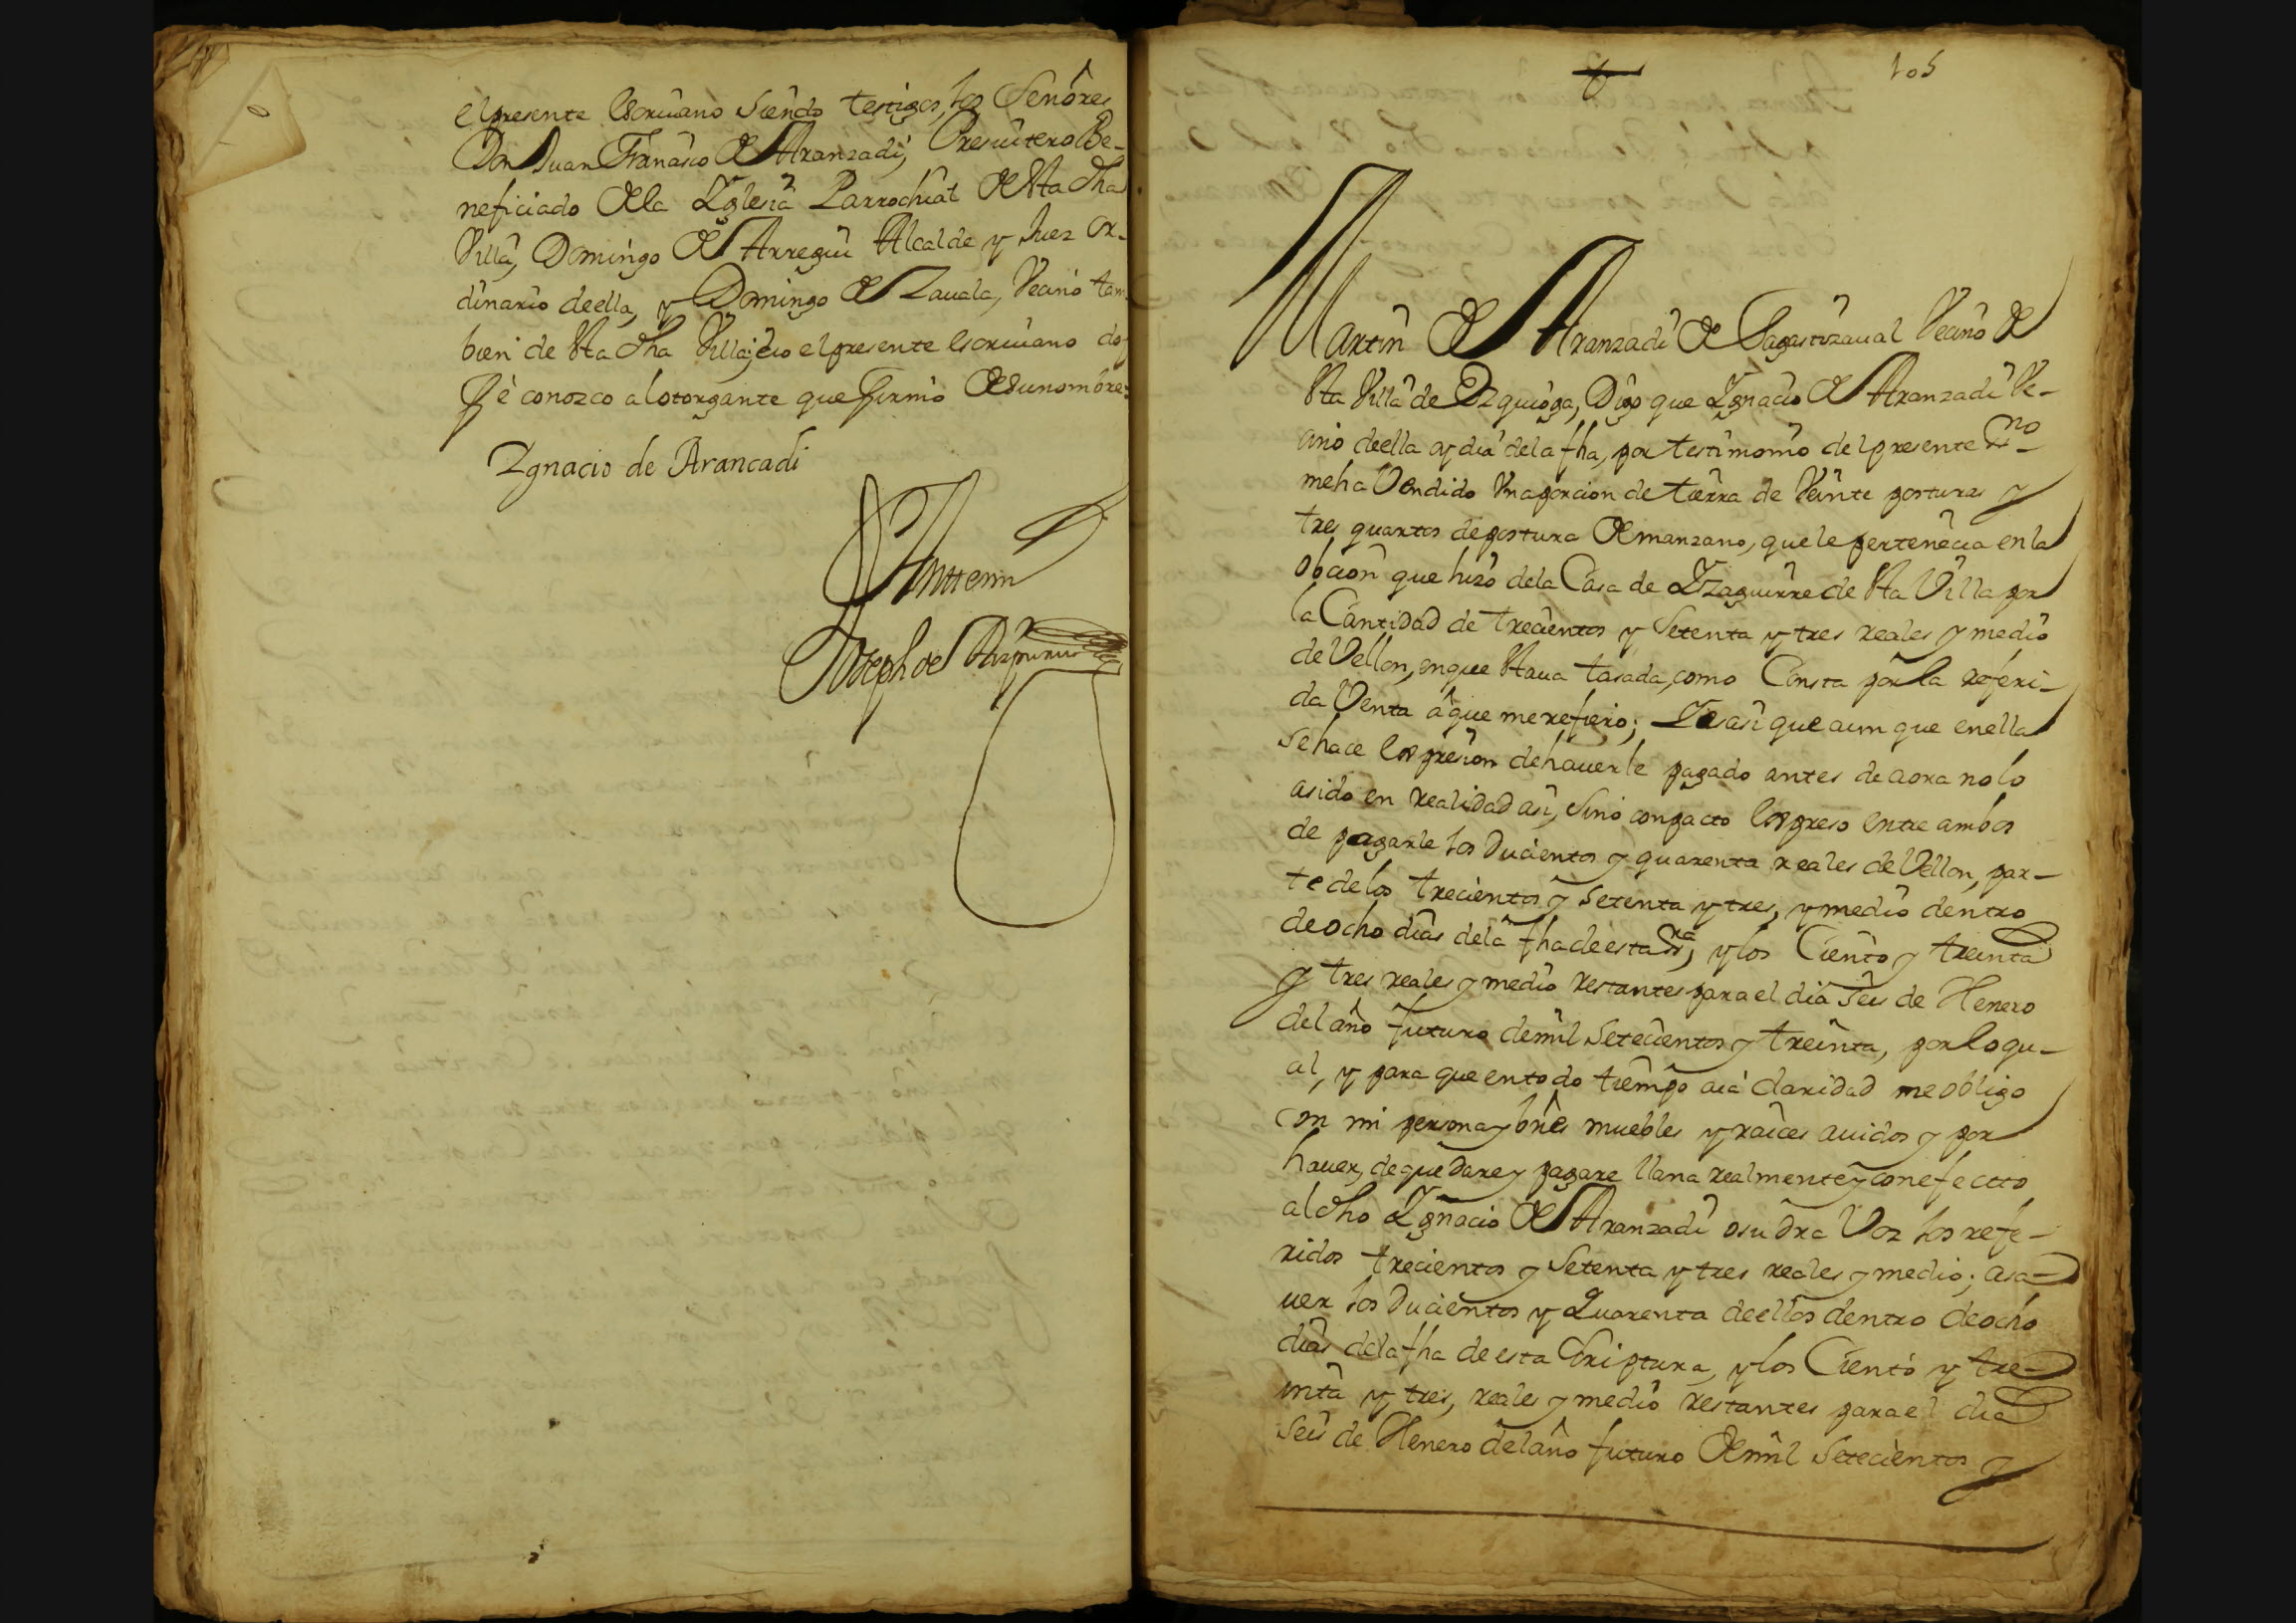 el presente Escriuano siendo testigos, los Señores
Don Juan Franasco de Aranzadi, Presuitero Be-
neficiado de la Yglesia Parrochial de Sta dha
Villa, Domingo de Arregui Alcalde y Juez or-
dinario de ella, y Domingo de Zauala, Vecino tam
bien de Sta dha Villa; e io el presente escriuano doy
feè conozco al otorgante que firmò de su nombre:
Ygnacio de Arancadi
Anttemi
Joseph de
105
Martin de Aranzadi de Sagastizaual Vecino de
Sta Villa de Ezquioga, Digo que Ygnacio de Aranzadi Ve-
cino de ella oy dia de la fha, por testimonio del presente Sno
me ha Vendido Vna porcion de tierra de Veinte posturas y
tres quartos de postura de manzano, que le pertenecia en la
obcion que hizo de la Casa de Yzaguirre de Sta Villa por
la Cantidad de trecientos y Setenta y tres reales y medio
de Vellon, en que Staua tasada, como Consta por la referi-
da Venta à que me refiero; Y es asi que aun que en ella
se hace Espresion de hauerle pagado antes de aora no lo
a sido en realidad asi, Sino con pacto Espreso entre ambos
de pagarle los Ducientos y quarenta reales de Vellon, par-
te de los trecientos y Setenta y tres, y medio dentro
de ocho dias de la fha de esta Sra, y los Ciento y treinta
y tres reales y medio restantes para el dia Seis de Henero
del año futuro de mil Setecientos y treinta, por lo qu-
al, y para que en todo tiempo aia claridad me obligo
con mi persona y bñes muebles y raices auidos y por
hauer, de que Dare y pagare llana realmente y con efectto
al dho Ygnacio de Aranzadi o su dra Voz los refe-
ridos trecientos y Setenta y tres reales y medio; a sa-
uer los Ducientos y Quarenta de ellos dentro de ocho
dias de la fha de esta Scriptura, y los Ciento y tre-
inta y tres, reales y medio restantes para el dia
Seis de Henero del año futuro de mil Setecientos y